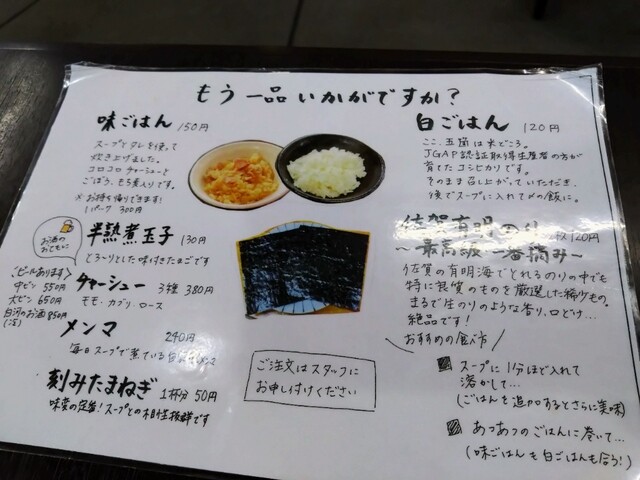 もう一品いかがですか?
味ごはん 150円
スープとタレを使って
炊き上げました。
コロコロチャーシューと
ごぼう、もち煮入りです。
※お持ち帰りできます!
1パーク 300円
お酒の
おともに
半熟煮玉子 130円
とろ〜りとした味付きたまごです
(ビールあります)
中ビン 550円
大ビン 650円
白河のお酒 850円
チャーシュー 3種 380円
モモ・カブリ・ロース
メンマ 240円
毎日スープで煮ている
刻みたまねぎ 1杯分 50円
味変の定番!スープとの相性抜群です
ご注文はスタッフに
お申し付けください
白ごはん 120円
ここ、五箇は米どころ。
JGAP認証取得生産者の方が
育てたコシヒカリです。
そのまま召し上がっていただき、
後でスープに入れて〆の飯に。
佐賀有明のり 120円
〜最高級一番摘み〜
佐賀の有明海でとれるのりの中でも
特に良質のものを厳選した稀少もの。
まるで生のりのような香り、口どけ…
絶品です!
おすすめの食べ方
スープに1分ほど入れて
溶かして…
(ごはんを追加するとさらに美味)
あつあつのごはんに巻いて…
(味ごはんも白ごはんも合う!)